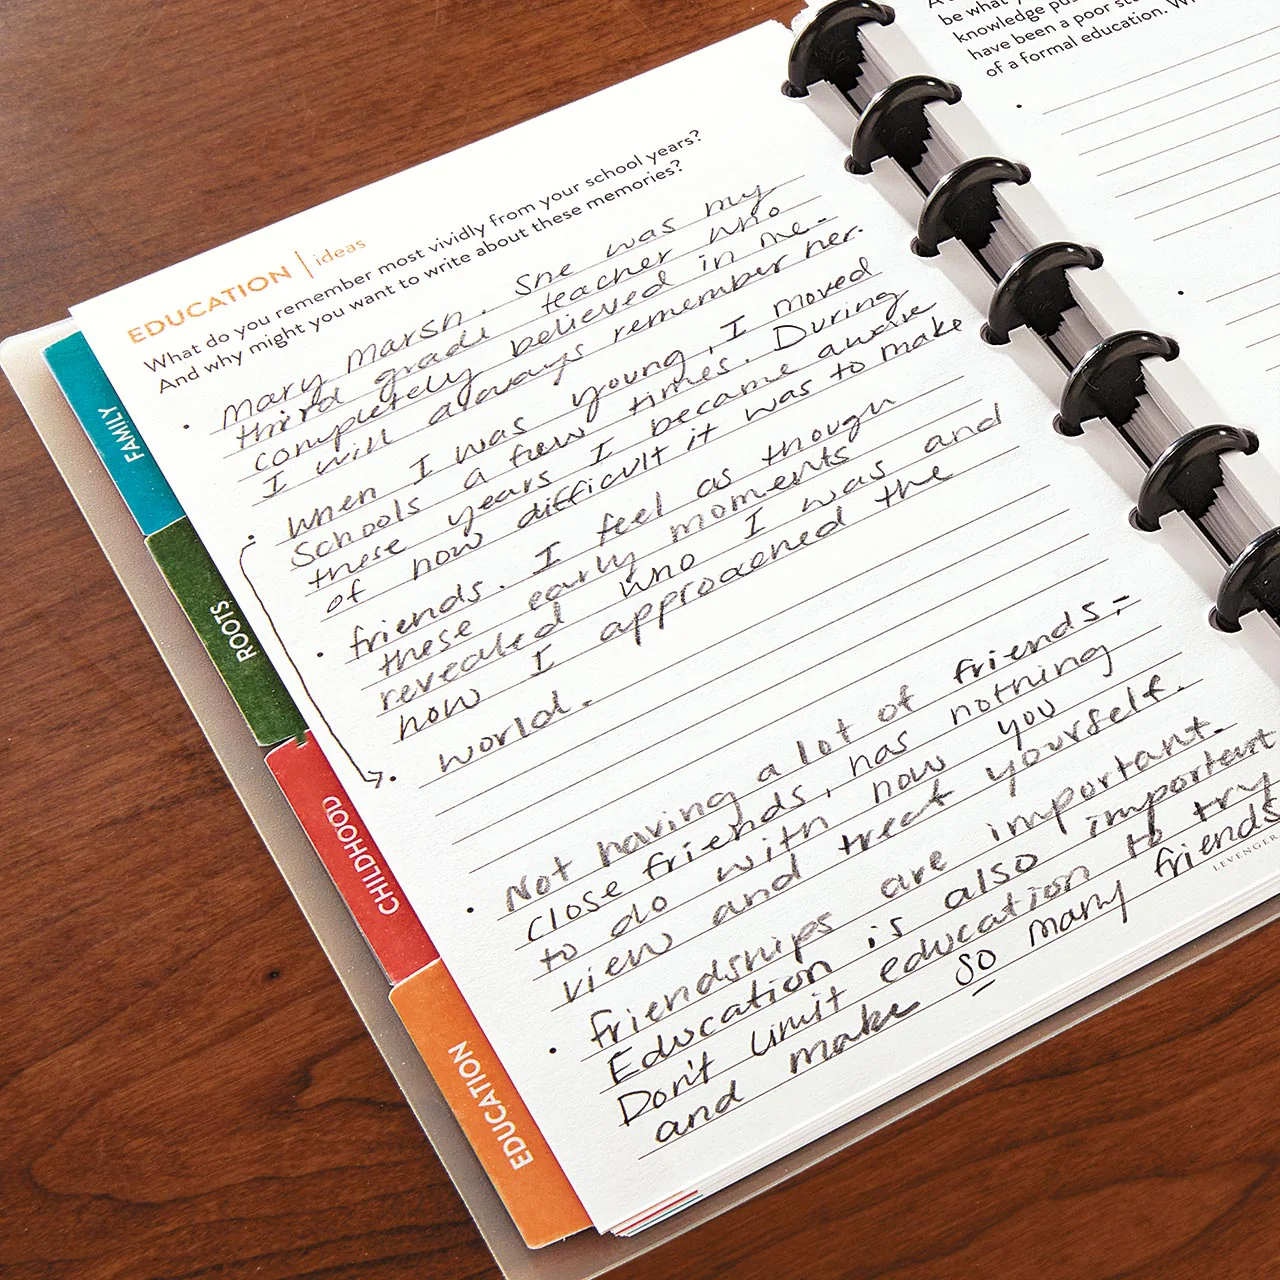 EDUCATION | ideas
What do you remember most vividly from your school years?
And why might you want to write about these memories?
Mary Marsh. She was my
third grade teacher who
completely believed in me.
I will always remember her.
When I was young, I moved
Schools a few times. During
these years I became aware
of how difficult it was to make
friends. I feel as though
these early moments
revealed who I was and
how I approached the
world.
Not having a lot of friends,
close friends, has nothing
to do with how you
view and treat yourself.
friendships are important.
Education is also important
Don't limit education to try
and make so many friends
FAMILY
ROOTS
CHILDHOOD
EDUCATION
LEVENGER
be what
knowledge
have been a poor
of a formal education.